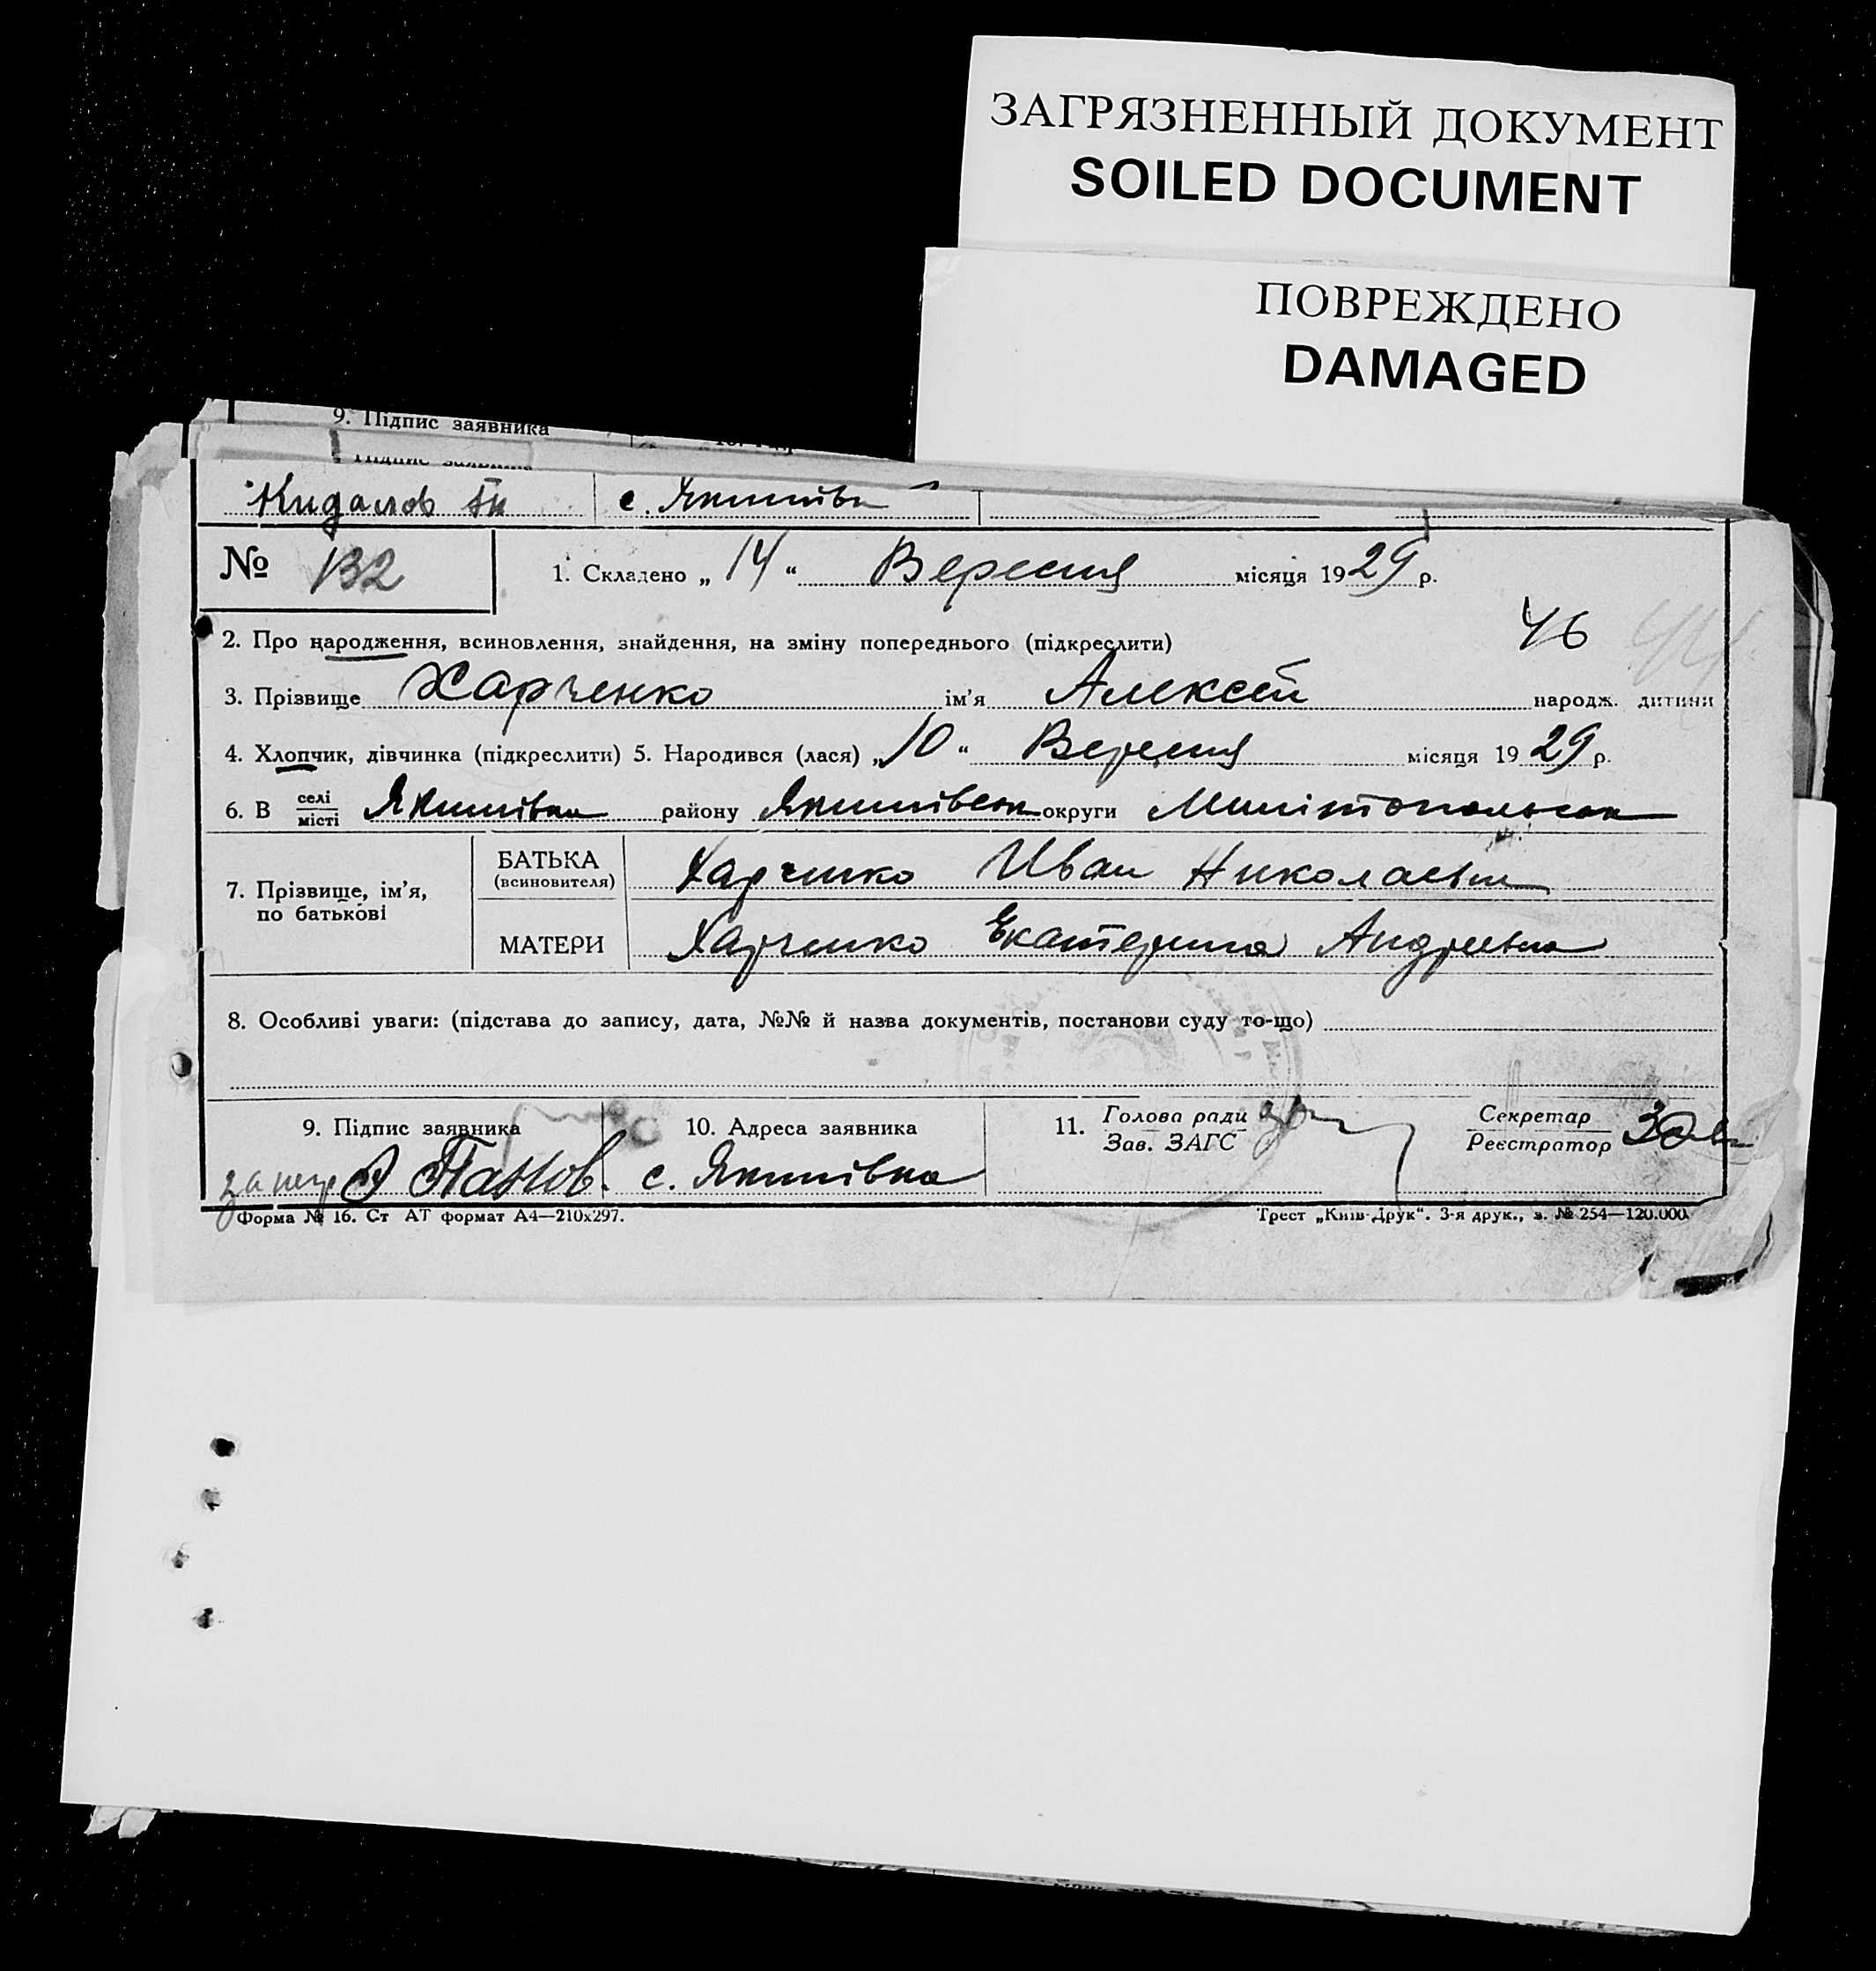 ЗАГРЯЗНЕННЫЙ ДОКУМЕНТ
SOILED DOCUMENT
ПОВРЕЖДЕНО
DAMAGED
9. Підпис заявника
Підпис заявника
Кидалов с. Якимівка
№ 132 1. Складено „ 14 “ Вересня місяця 1929 р.
46
2. Про народження, всиновлення, знайдення, на зміну попереднього (підкреслити)
3. Прізвище Харченко ім’я Алексей народж. дитини
4. Хлопчик, дівчинка (підкреслити) 5. Народився (лася) „ 10 “ Вересня місяця 1929 р.
6. В селі
місті Якимівка району Якимівськ округи Мелітопольськ
7. Прізвище, ім’я,
по батькові
БАТЬКА
(всиновителя) Харченко Иван Николаевич
МАТЕРИ Харченко Екатерина Андреевна
8. Особливі уваги: (підстава до запису, дата, №№ й назва документів, постанови суду то-що)
9. Підпис заявника 10. Адреса заявника 11. Голова ради
Зав. ЗАГС Секретар
Реєстратор
с. Якимівка
Форма № 16. Ст АТ формат А4—210х297. Трест „Київ-Друк“. 3-я друк., з. № 254—120.000.